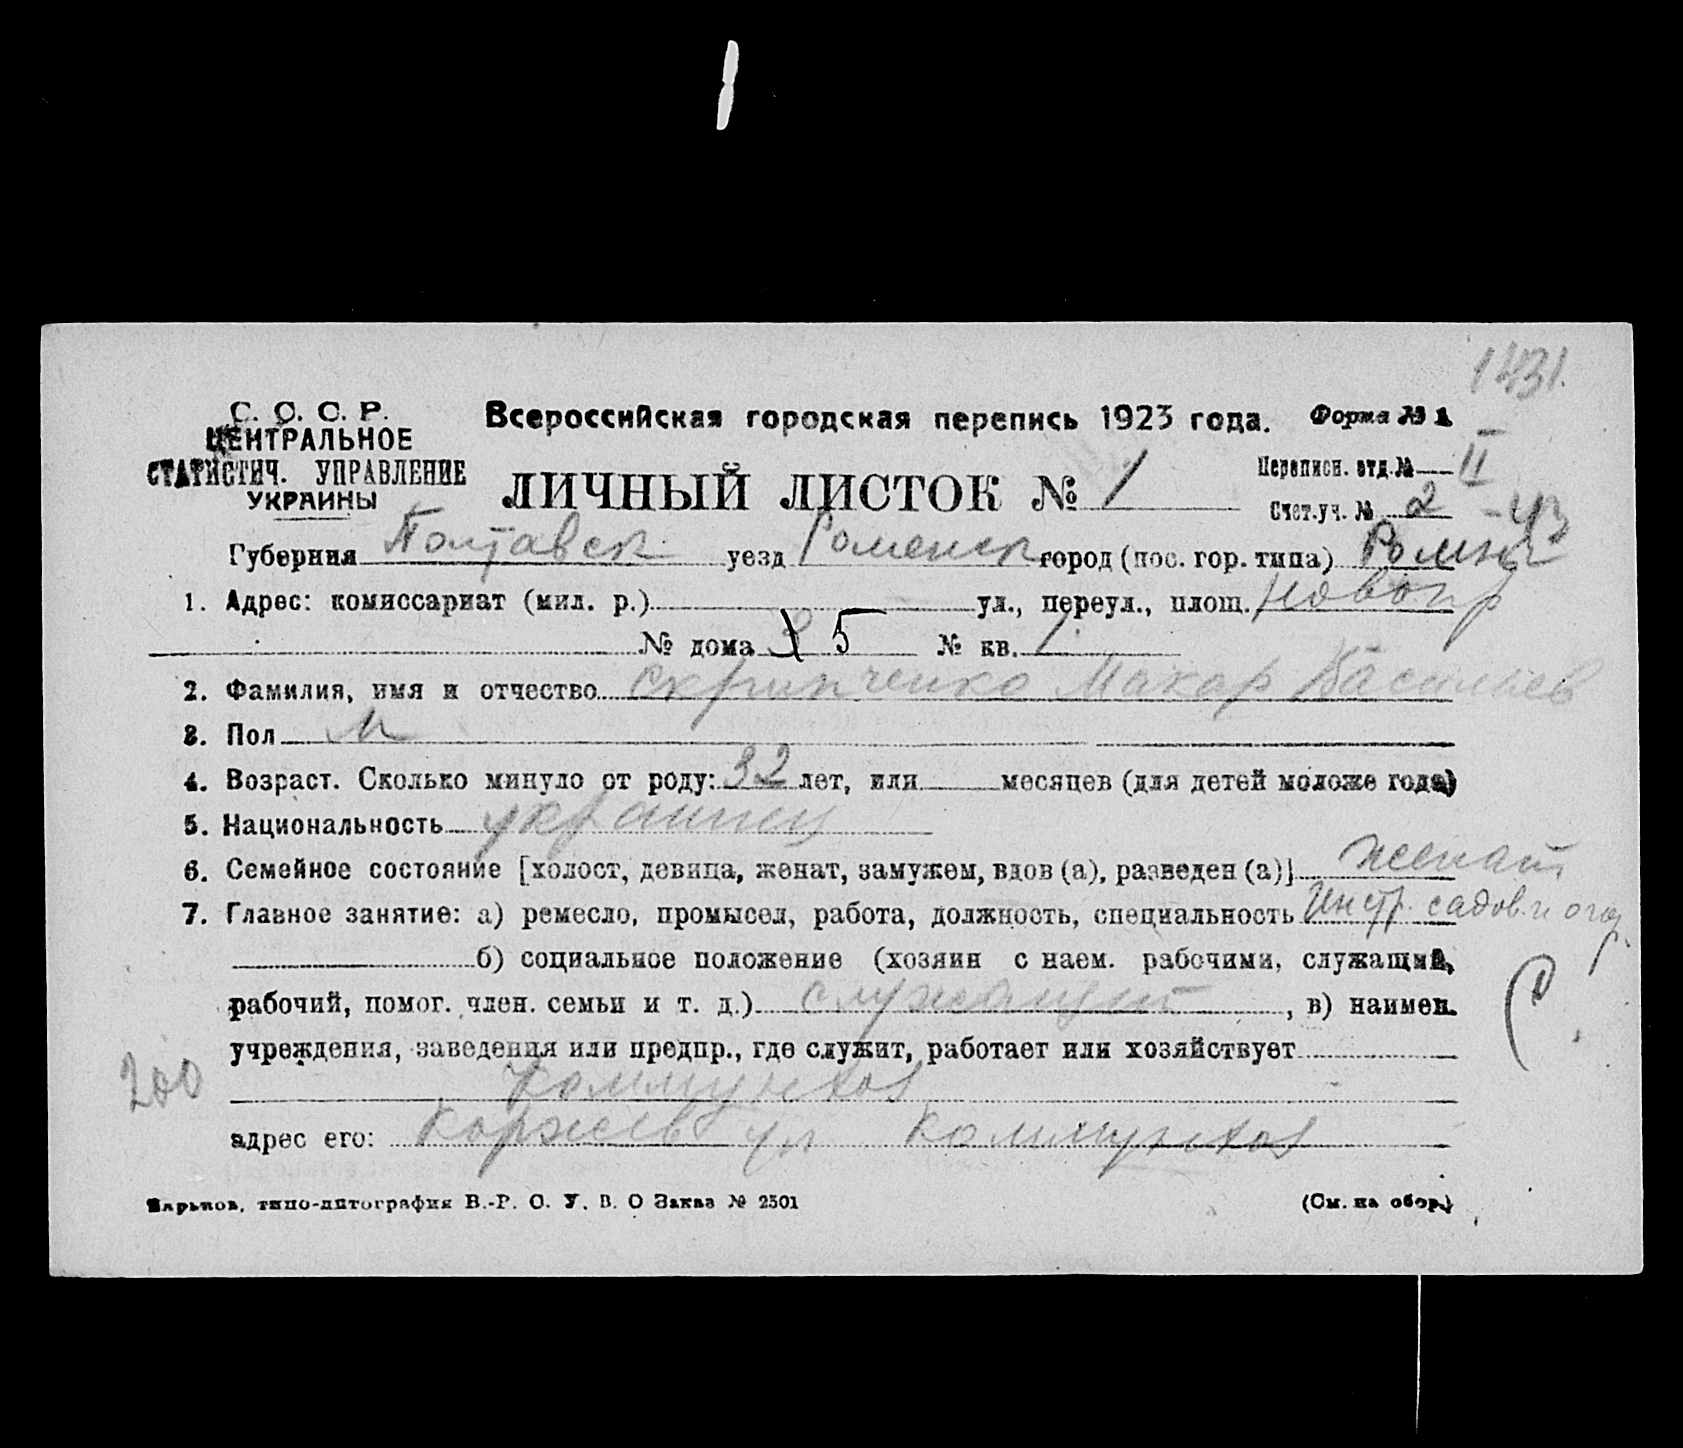 1431.
С. С. С. Р.
ЦЕНТРАЛЬНОЕ
СТАТИСТИЧ. УПРАВЛЕНИЕ
УКРАИНЫ
Всероссийская городская перепись 1923 года. Форма № 1
ЛИЧНЫЙ ЛИСТОК № 1
Переписн. отд. № II
Счет. уч. № 2 - 43
Губерния Полтавск уезд Роменск город (пос. гор. типа) Ромны
1. Адрес: комиссариат (мил. р.) ул., переул., площ. Новопр
№ дома 5 № кв. 1
2. Фамилия, имя и отчество Скрипченко Макар Васильев
3. Пол м
4. Возраст. Сколько минуло от роду: 32 лет, или месяцев (для детей моложе года)
5. Национальность украинец
6. Семейное состояние [холост, девица, женат, замужем, вдов (а), разведен (а)] женат
7. Главное занятие: а) ремесло, промысел, работа, должность, специальность Инстр. садов. и огор.
б) социальное положение (хозяин с наем. рабочими, служащий,
рабочий, помог. член. семьи и т. д.) служащий, в) наимен.
учреждения, заведения или предпр., где служит, работает или хозяйствует
200
Коммунхоз
адрес его: Коржевс ул Коммунхоз
Харьков, типо-литография В.-Р. О. У. В. О Заказ № 2501 (См. на обор.)